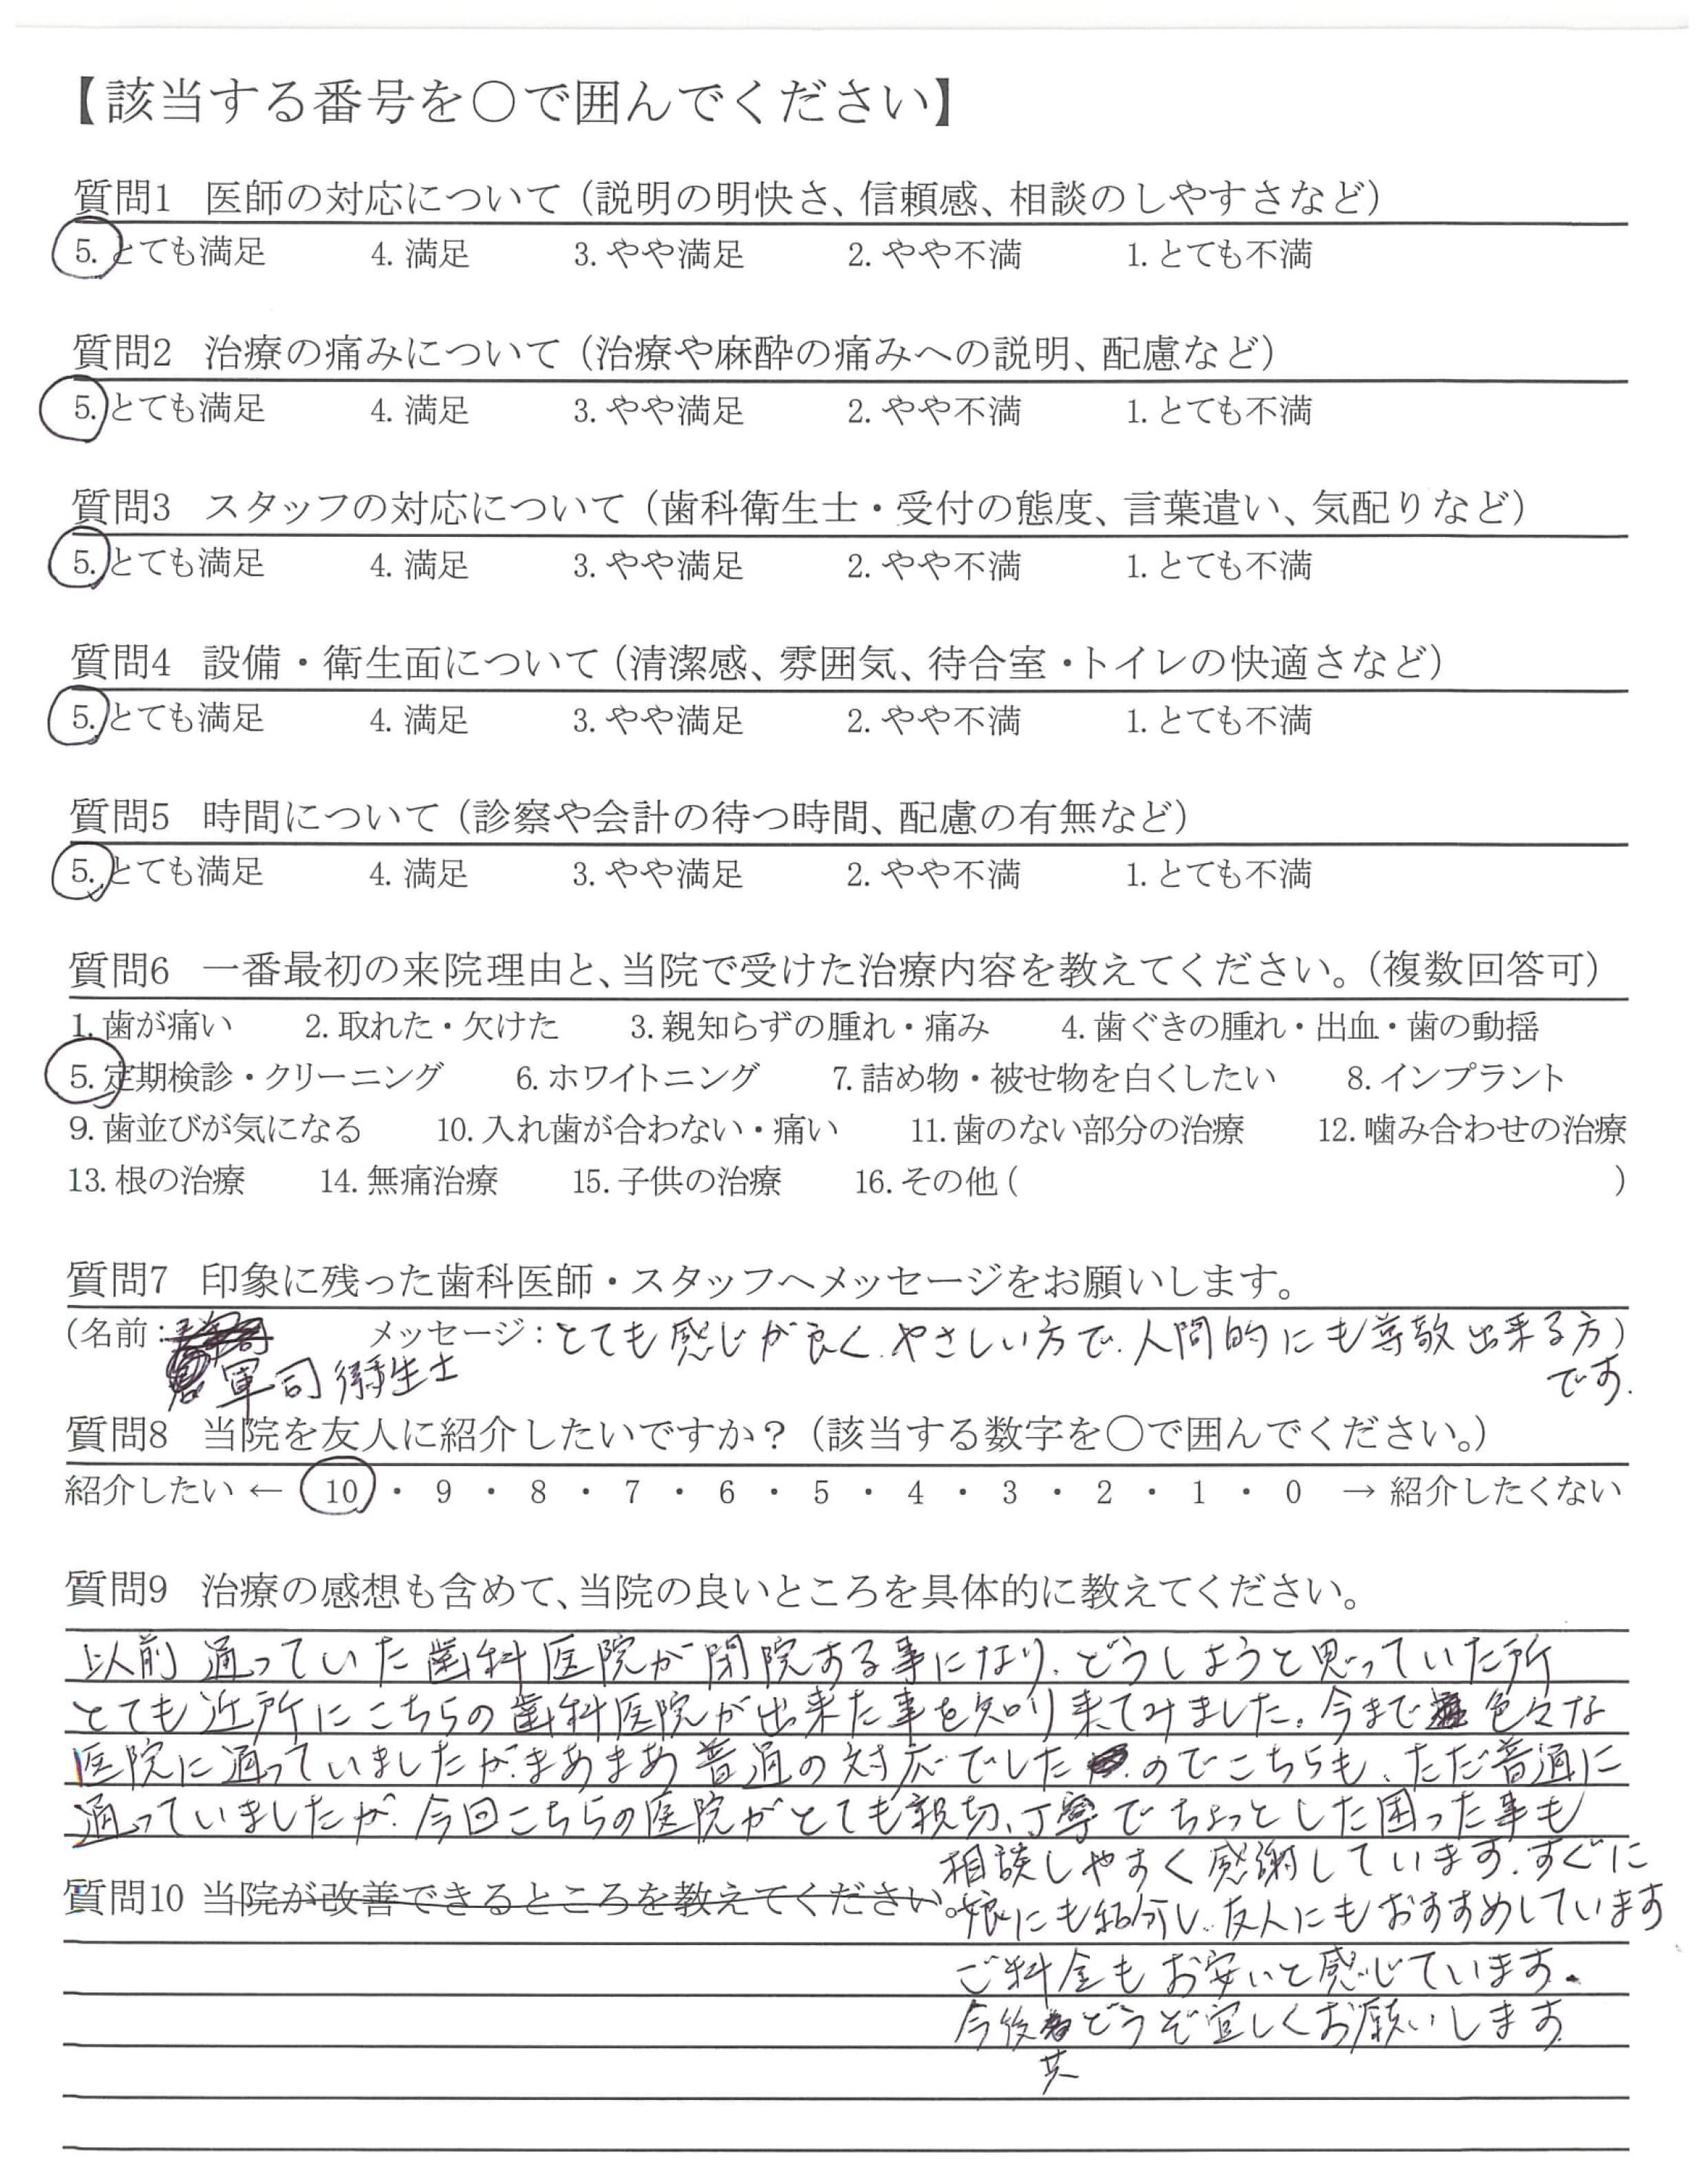 【該当する番号を○で囲んでください】
質問1 医師の対応について（説明の明快さ、信頼感、相談のしやすさなど）
5. とても満足 4. 満足 3. やや満足 2. やや不満 1. とても不満
質問2 治療の痛みについて（治療や麻酔の痛みへの説明、配慮など）
5. とても満足 4. 満足 3. やや満足 2. やや不満 1. とても不満
質問3 スタッフの対応について（歯科衛生士・受付の態度、言葉遣い、気配りなど）
5. とても満足 4. 満足 3. やや満足 2. やや不満 1. とても不満
質問4 設備・衛生面について（清潔感、雰囲気、待合室・トイレの快適さなど）
5. とても満足 4. 満足 3. やや満足 2. やや不満 1. とても不満
質問5 時間について（診察や会計の待つ時間、配慮の有無など）
5. とても満足 4. 満足 3. やや満足 2. やや不満 1. とても不満
質問6 一番最初の来院理由と、当院で受けた治療内容を教えてください。（複数回答可）
1. 歯が痛い 2. 取れた・欠けた 3. 親知らずの腫れ・痛み 4. 歯ぐきの腫れ・出血・歯の動揺
5. 定期検診・クリーニング 6. ホワイトニング 7. 詰め物・被せ物を白くしたい 8. インプラント
9. 歯並びが気になる 10. 入れ歯が合わない・痛い 11. 歯のない部分の治療 12. 噛み合わせの治療
13. 根の治療 14. 無痛治療 15. 子供の治療 16. その他（ ）
質問7 印象に残った歯科医師・スタッフへメッセージをお願いします。
（名前： メッセージ：とても感じが良く、やさしい方で、人間的にも尊敬出来る方）
軍司衛生士 です.
質問8 当院を友人に紹介したいですか？（該当する数字を○で囲んでください。）
紹介したい ← 10 ・ 9 ・ 8 ・ 7 ・ 6 ・ 5 ・ 4 ・ 3 ・ 2 ・ 1 ・ 0 → 紹介したくない
質問9 治療の感想も含めて、当院の良いところを具体的に教えてください。
以前通っていた歯科医院が閉院する事になり、どうしようと思っていた所
とても近所にこちらの歯科医院が出来た事を知り来てみました。今まで色々な
医院に通っていましたが、まあまあ普通の対応でしたのでこちらも、ただ普通に
通っていましたが、今回こちらの医院がとても親切、丁寧でちょっとした困った事も
相談しやすく感謝しています。すぐに
質問10 当院が改善できるところを教えてください。娘にも紹介し、友人にもおすすめしています
ご料金もお安いと感じています.
今後どうぞ宜しくお願いします
共